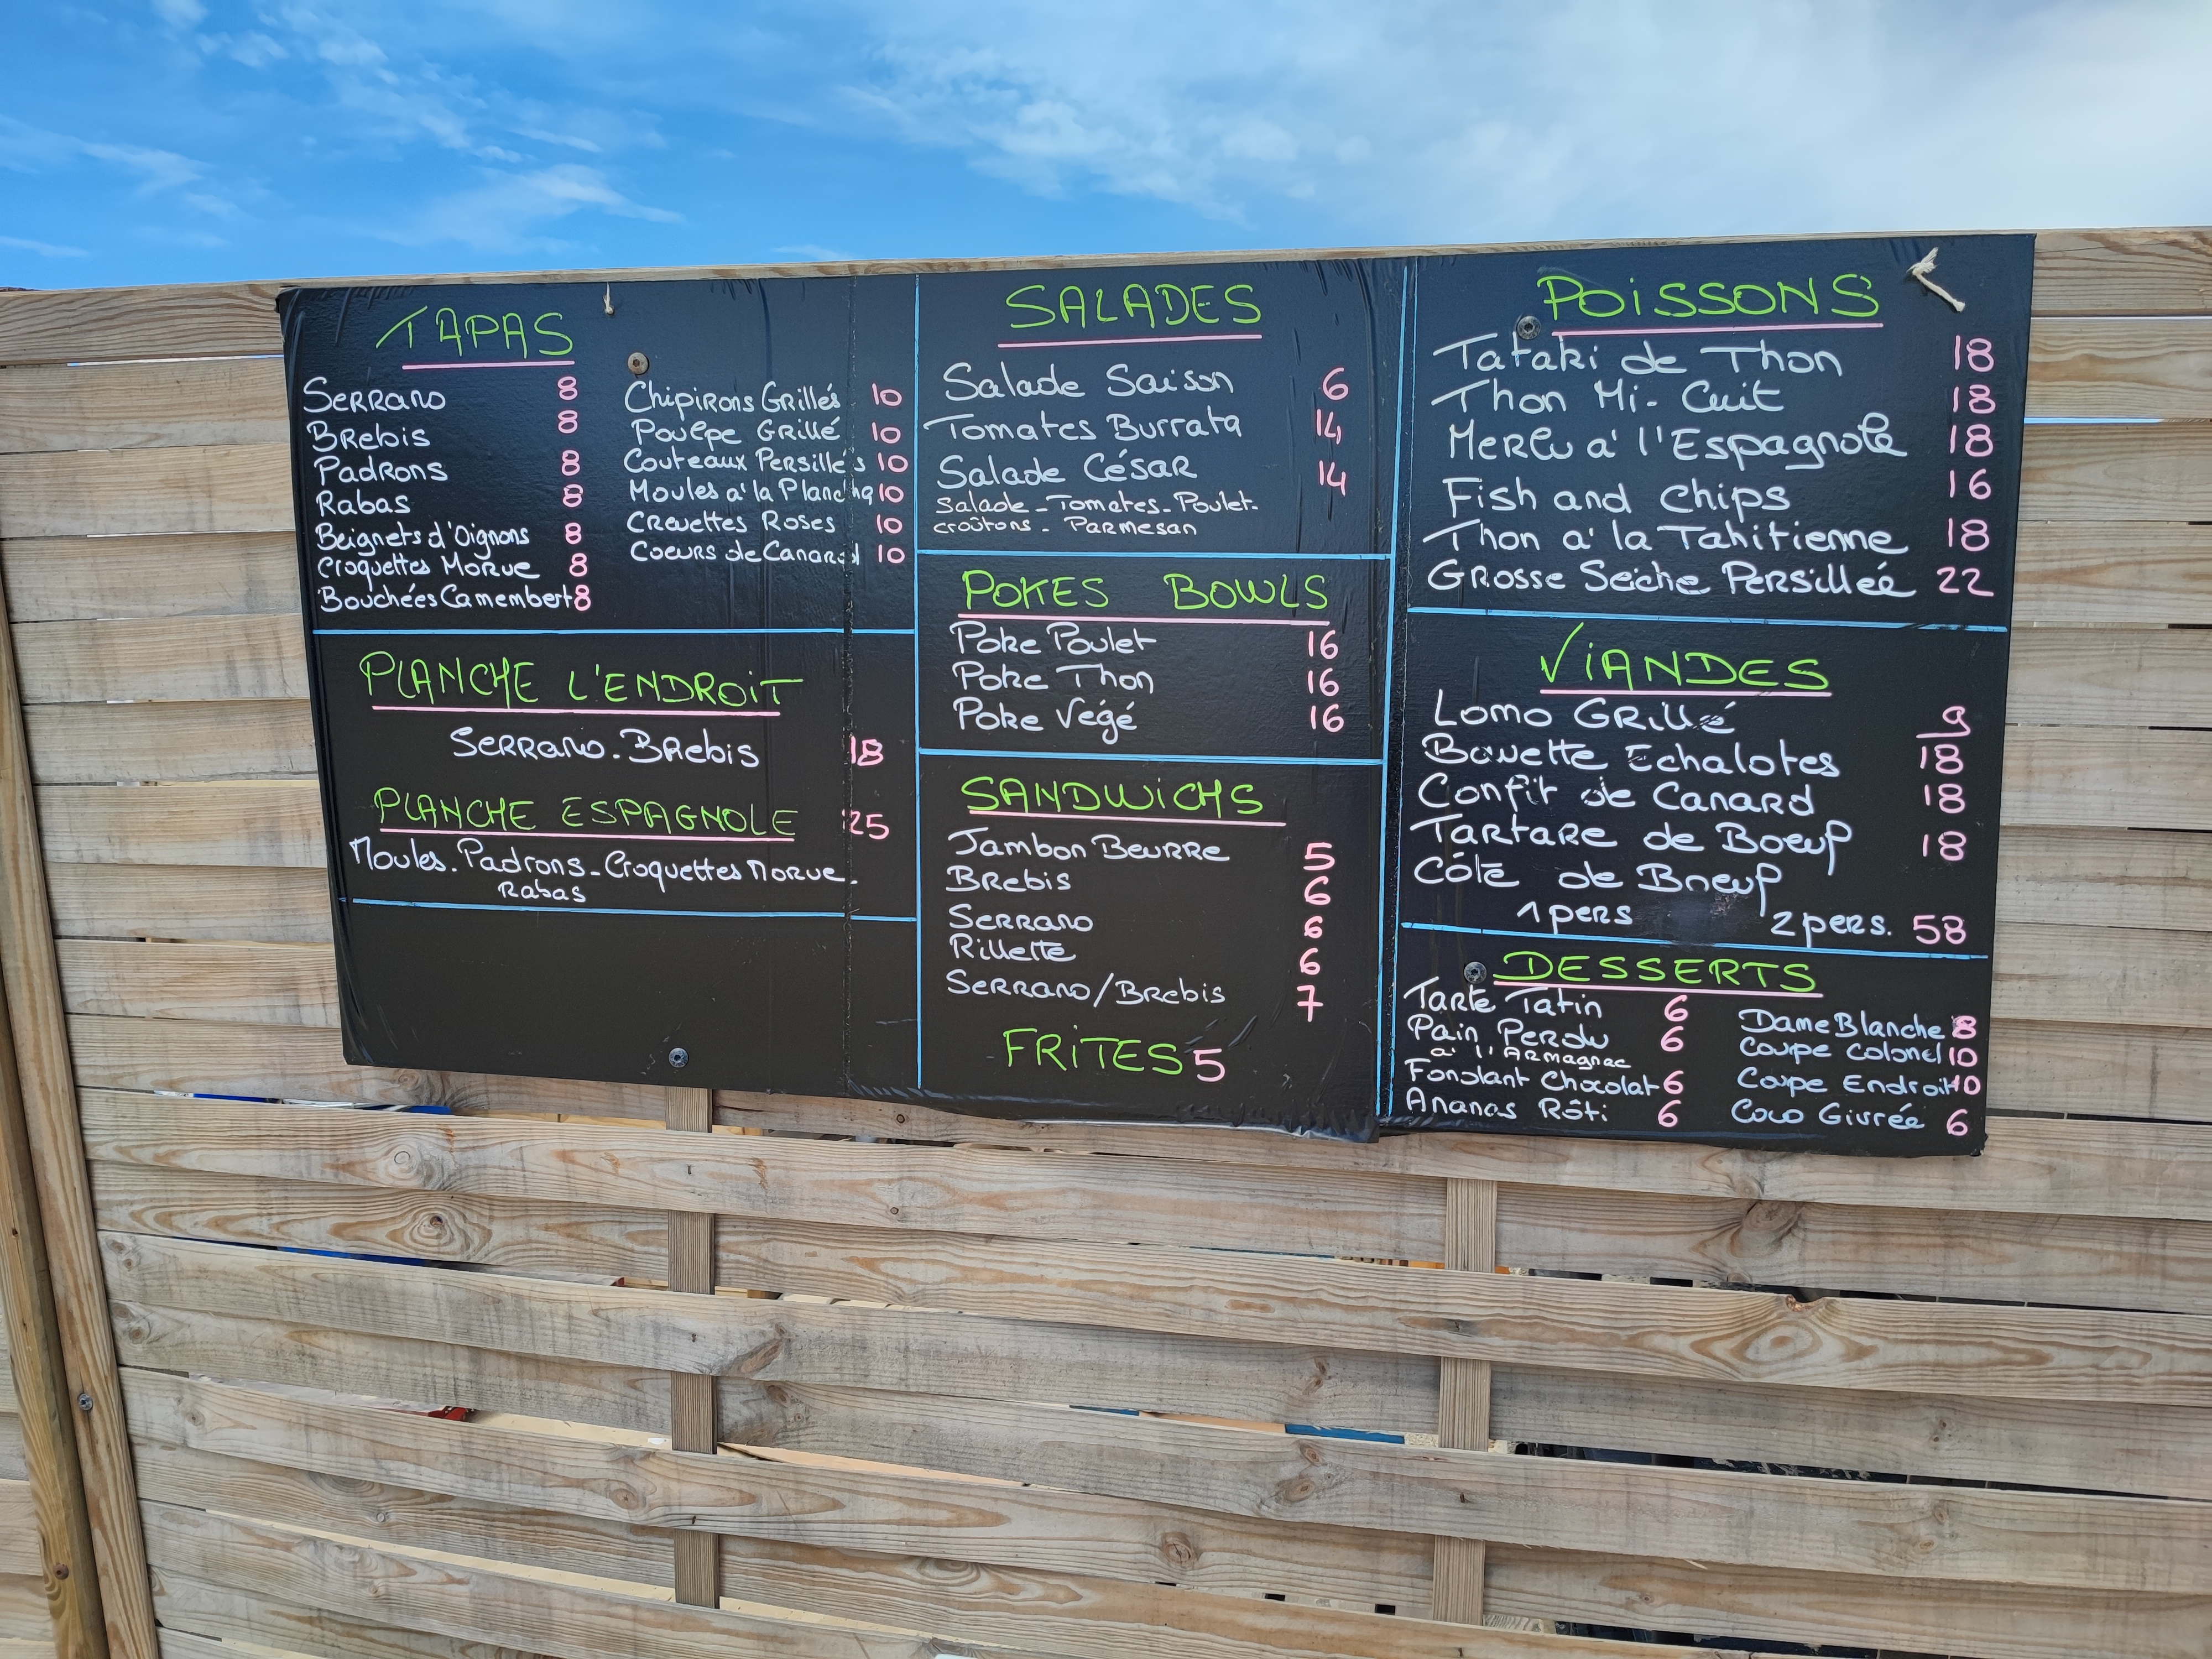 TAPAS
Serrano 8
Brebis 8
Padrons 8
Rabas 8
Beignets d'Oignons 8
Croquettes Morue 8
Bouchées Camembert 8
Chipirons Grillés 10
Poulpe Grillé 10
Couteaux Persillés 10
Moules à la Plancha 10
Crevettes Roses 10
Coeurs de Canard 10
PLANCHE L'ENDROIT
Serrano. Brebis 18
PLANCHE ESPAGNOLE 25
Moules. Padrons - Croquettes Morue.
Rabas
SALADES
Salade Saison 6
Tomates Burrata 14
Salade César 14
Salade - Tomates - Poulet -
croûtons - Parmesan
POKES BOWLS
Poke Poulet 16
Poke Thon 16
Poke Végé 16
SANDWICHS
Jambon Beurre 5
Brebis 6
Serrano 6
Rillette 6
Serrano/Brebis 7
FRITES 5
POISSONS
Tataki de Thon 18
Thon Mi-Cuit 18
Merlu à l'Espagnole 18
Fish and Chips 16
Thon à la Tahitienne 18
Grosse Seiche Persilleé 22
VIANDES
Lomo Grillé 9
Bavette Echalotes 18
Confit de Canard 18
Tartare de Boeuf 18
Côte de Boeuf
1 pers 2 pers. 58
DESSERTS
Tarte Tatin 6
Pain Perdu 6
à l'Armagnac
Fondant Chocolat 6
Ananas Rôti 6
Dame Blanche 8
Coupe Colonel 10
Coupe Endroit 10
Coco Givrée 6